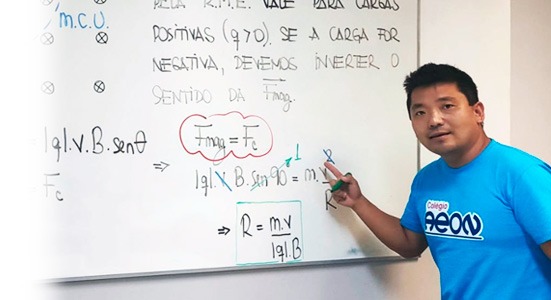 PELA R.M.E. VALE PARA CARGAS
m.C.U.
POSITIVAS (q>0). SE A CARGA FOR
NEGATIVA, DEVEMOS INVERTER O
SENTIDO DA Fmag.
|q|.v.B.senθ
Fc
⇒ Fmag = Fc
|q|.v.B.sen90 = m.v²
1
R
⇒ R = m.v
|q|.B
Colégio
AEON